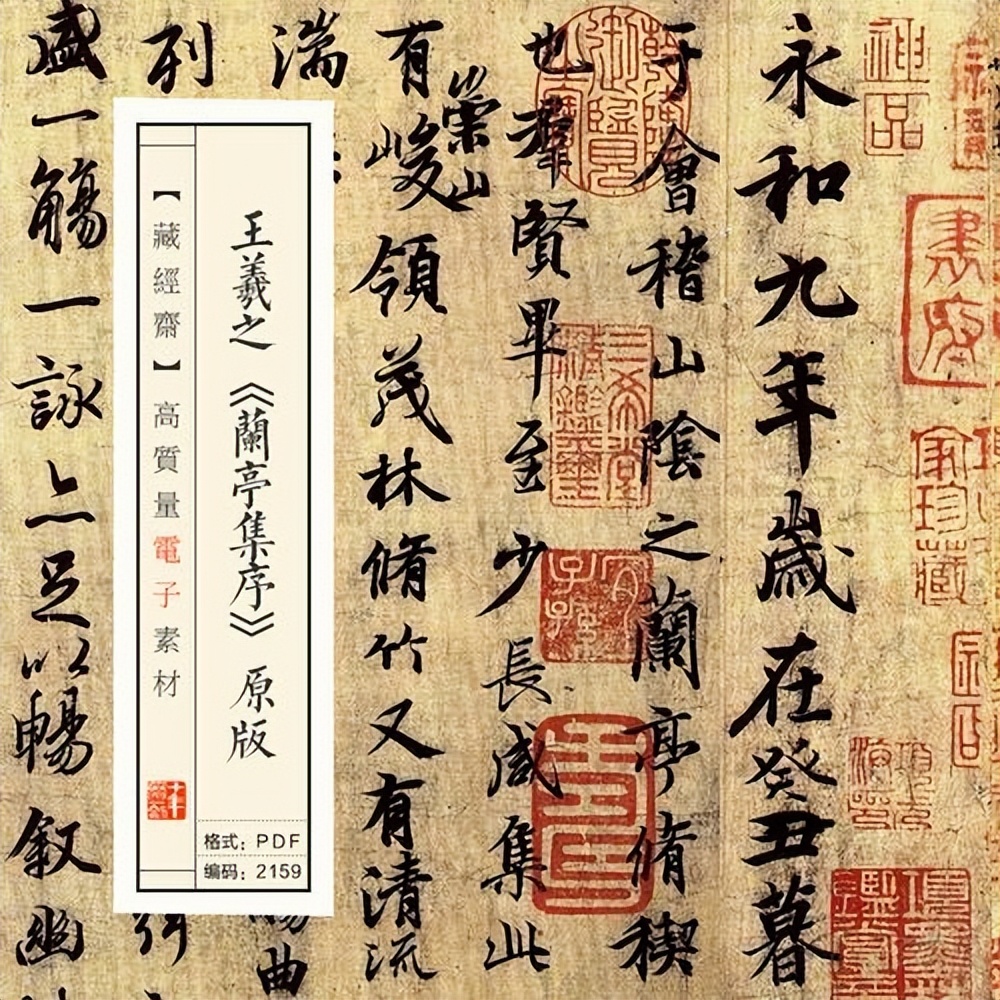 神品
永和九年歳在癸丑暮
于會稽山陰之蘭亭脩稧
也羣賢畢至少長咸集此
有崇山峻領茂林脩竹又有清流
湍
曲
列
盛一觴一詠亦足以暢叙幽
王羲之《蘭亭集序》 原版
【藏經齋】高質量電子素材
格式：PDF
编码：2159